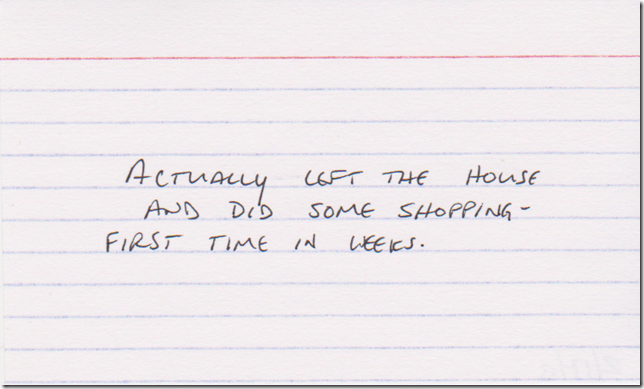 Actually left the house
and did some shopping-
first time in weeks.